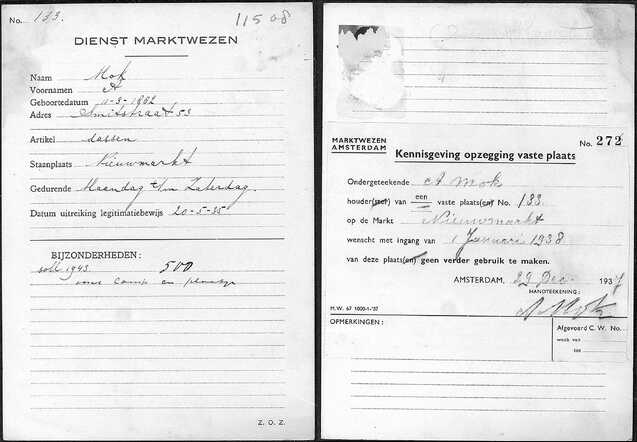 No. 133.
11508
DIENST MARKTWEZEN
Naam Mok
Voornamen A
Geboortedatum 11-3-1902
Adres Smitstraat 53
Artikel dassen
Staanplaats Nieuwmarkt
Gedurende Maandag t/m Zaterdag.
Datum uitreiking legitimatiebewijs 20-5-35
BIJZONDERHEDEN:
soll 1943. 500
voor lomp en
Z. O. Z.
MARKTWEZEN
AMSTERDAM
No. 272
Kennisgeving opzegging vaste plaats
Ondergeteekende A Mok
houder(ster) van een vaste plaats(en) No. 133
op de Markt Nieuwmarkt
wenscht met ingang van 1 Januari 1938
van deze plaats(en) geen verder gebruik te maken.
AMSTERDAM, 29 Dec. 1937
HANDTEEKENING:
A Mok
M.W. 67 1000-1-'37
OPMERKINGEN:
Afgevoerd C. W. No.
week van
tot